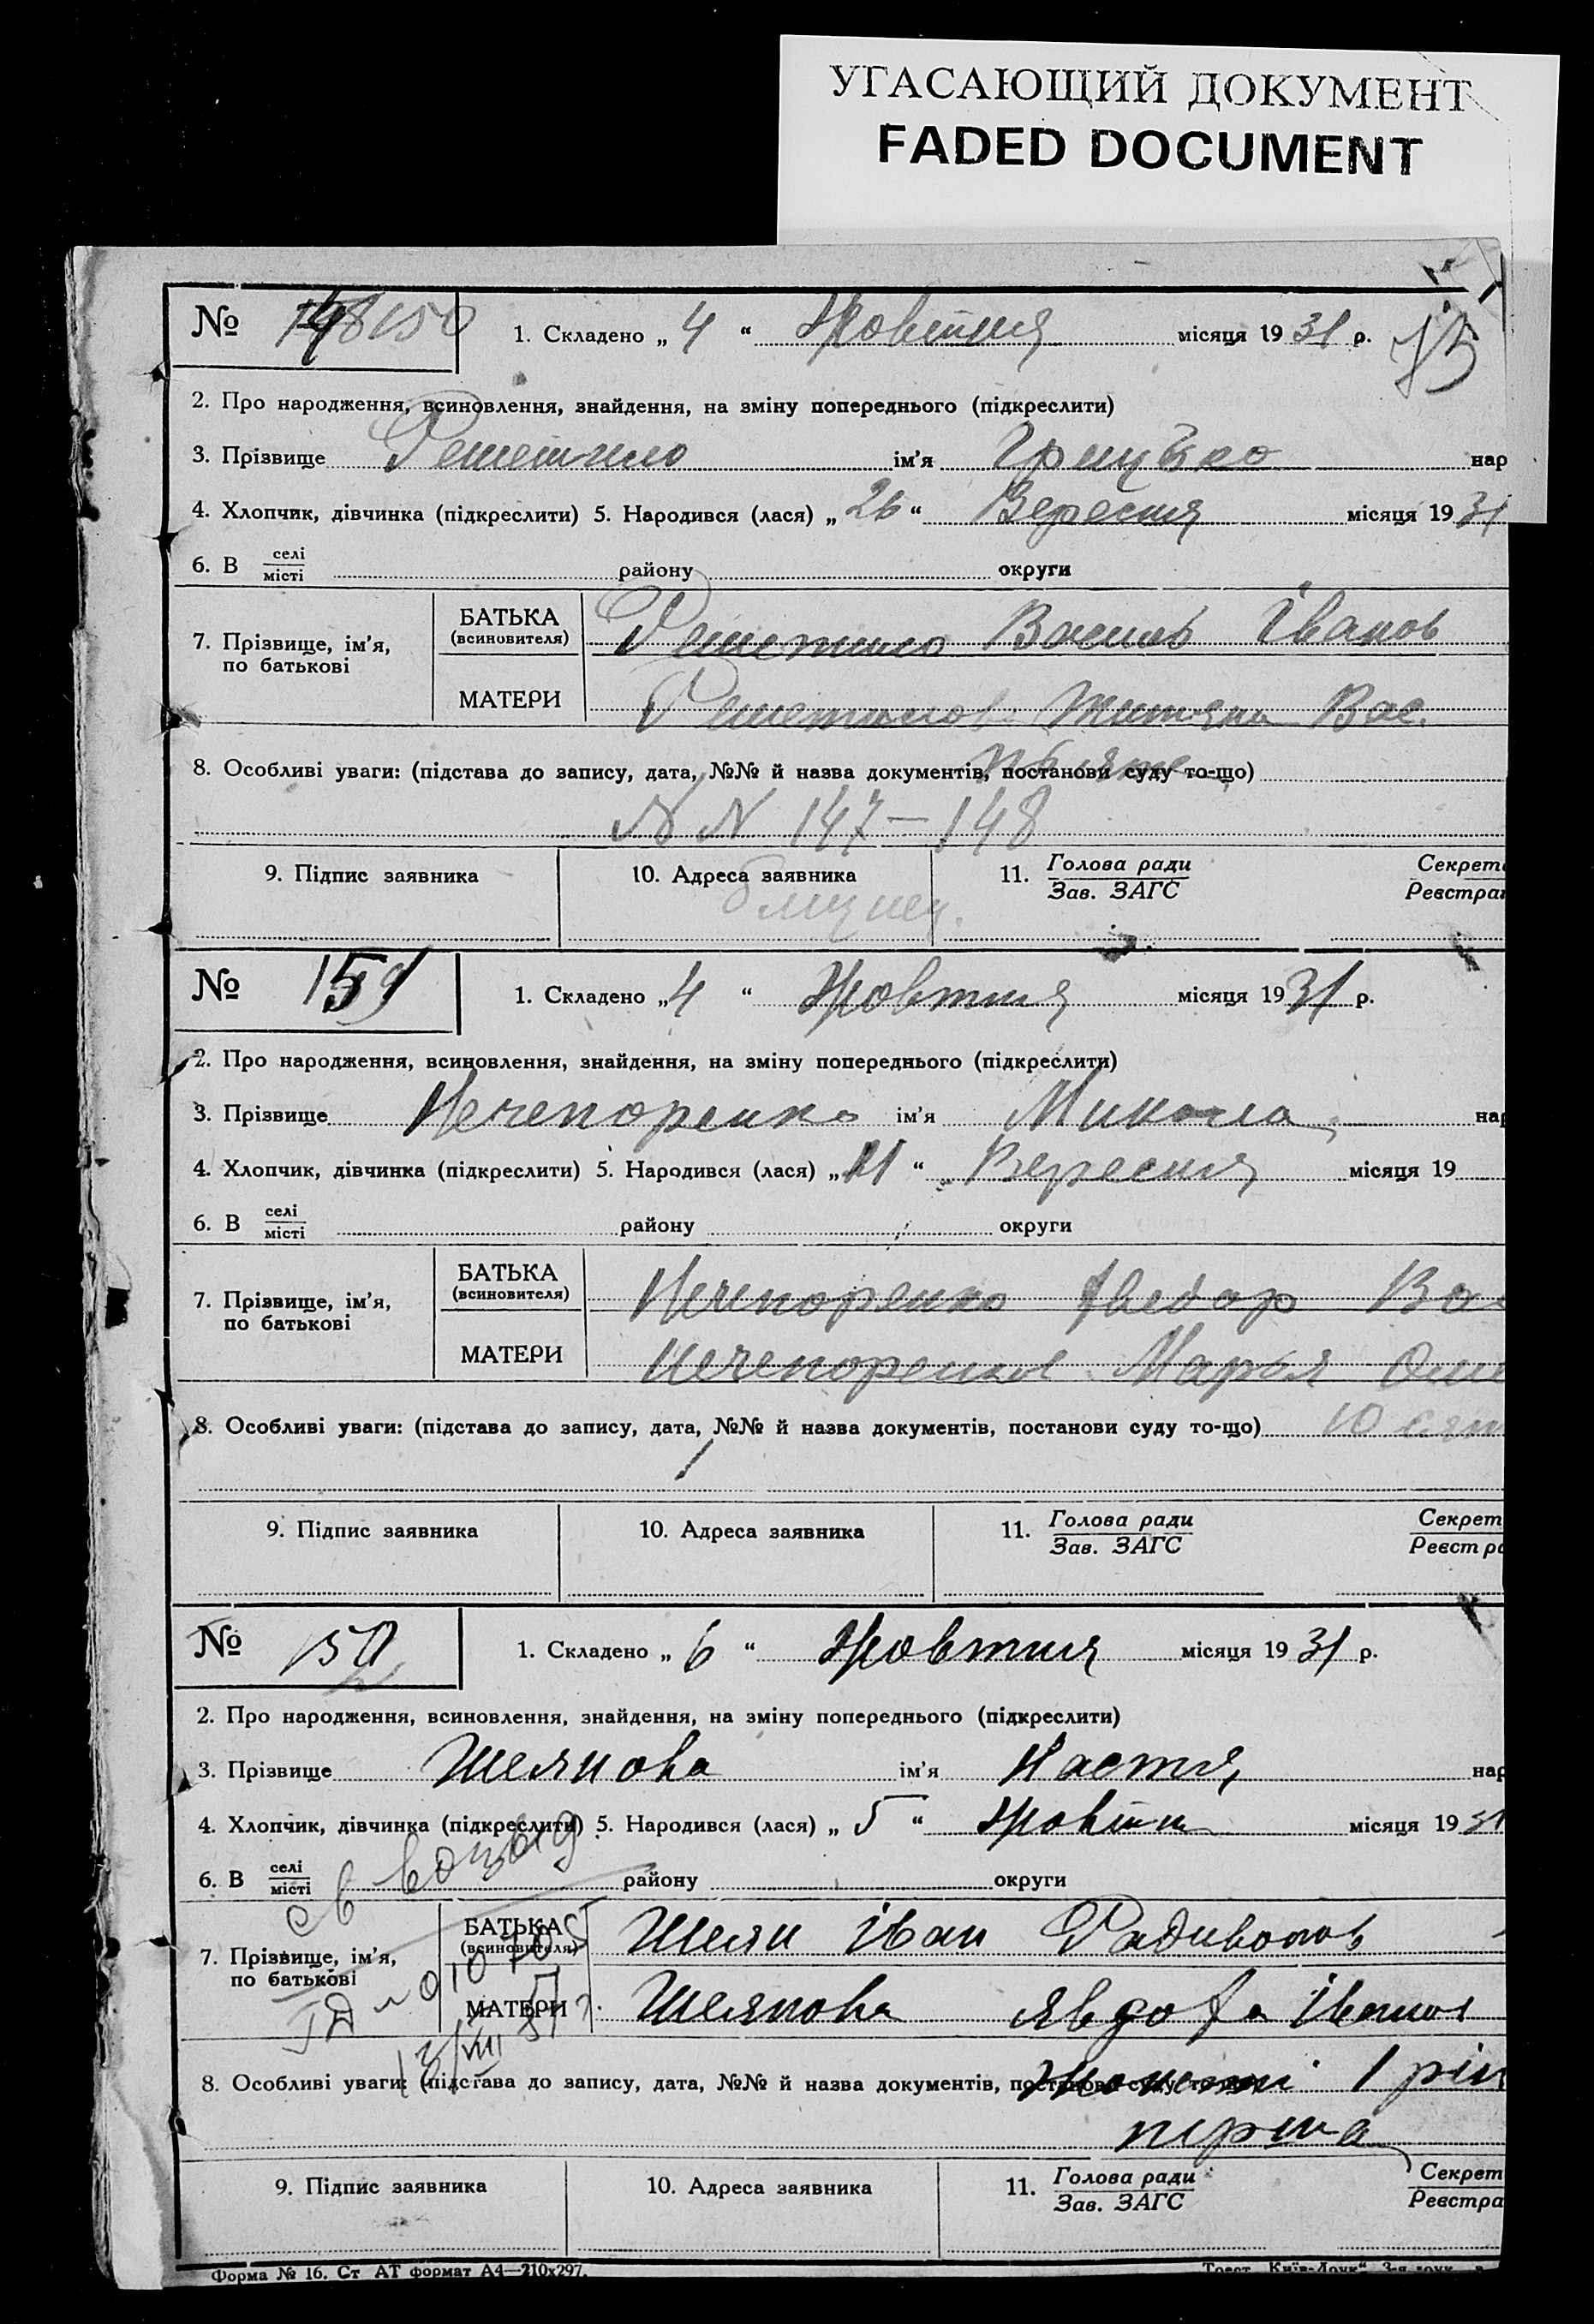 УГАСАЮЩИЙ ДОКУМЕНТ
FADED DOCUMENT
№ 148 150 1. Складено „ 4 “ Жовтня місяця 19 31 р. 75
2. Про народження, всиновлення, знайдення, на зміну попереднього (підкреслити)
3. Прізвище Решетило ім'я Грицько нар
4. Хлопчик, дівчинка (підкреслити) 5. Народився (лася) „ 26 “ Вересня місяця 19 31
6. В селі/місті району округи
7. Прізвище, ім'я, по батькові
БАТЬКА (всиновителя) Решетило Василь Іванов
МАТЕРИ Вас.
8. Особливі уваги: (підстава до запису, дата, №№ й назва документів, постанови суду то-що)
N N 147 — 148
9. Підпис заявника 10. Адреса заявника 11. Голова ради/Зав. ЗАГС Секрет Реєстра
близнец.
№ 151 1. Складено „ 4 “ Жовтня місяця 19 31 р.
2. Про народження, всиновлення, знайдення, на зміну попереднього (підкреслити)
3. Прізвище Нечепоренко ім'я Микола нар
4. Хлопчик, дівчинка (підкреслити) 5. Народився (лася) „ 21 “ Вересня місяця 19
6. В селі/місті району округи
7. Прізвище, ім'я, по батькові
БАТЬКА (всиновителя) Нечепоренко Федор Ва
МАТЕРИ Нечепоренков Марья
8. Особливі уваги: (підстава до запису, дата, №№ й назва документів, постанови суду то-що) 10
9. Підпис заявника 10. Адреса заявника 11. Голова ради/Зав. ЗАГС Секрет Реєстра
№ 152 1. Складено „ 6 “ Жовтня місяця 19 31 р.
2. Про народження, всиновлення, знайдення, на зміну попереднього (підкреслити)
3. Прізвище Шелянова ім'я Настя нар
4. Хлопчик, дівчинка (підкреслити) 5. Народився (лася) „ 5 “ Жовтн місяця 19 31
6. В селі/місті району округи
7. Прізвище, ім'я, по батькові
БАТЬКА (всиновителя) Шелян Іван Радивонов
МАТЕРИ Шелянова Явдоха Іванов
8. Особливі уваги: (підстава до запису, дата, №№ й назва документів, 1 рік
перша
9. Підпис заявника 10. Адреса заявника 11. Голова ради/Зав. ЗАГС Секрет Реєстра
Форма № 16. Ст АТ формат А4—210х297.
Трест „Київ-Друк“